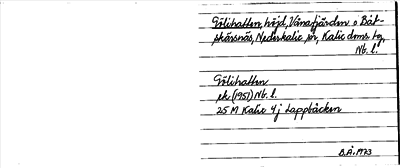 Gölihatten, höjd, Vånafjärden o Båt-
skärsnäs, Nederkalix sn, Kalix doms tg,
Nb. l.
Gölihatten
ek (1951) Nb. l.
25 M Kalix 4j Lappbäcken
B.Å. 1973